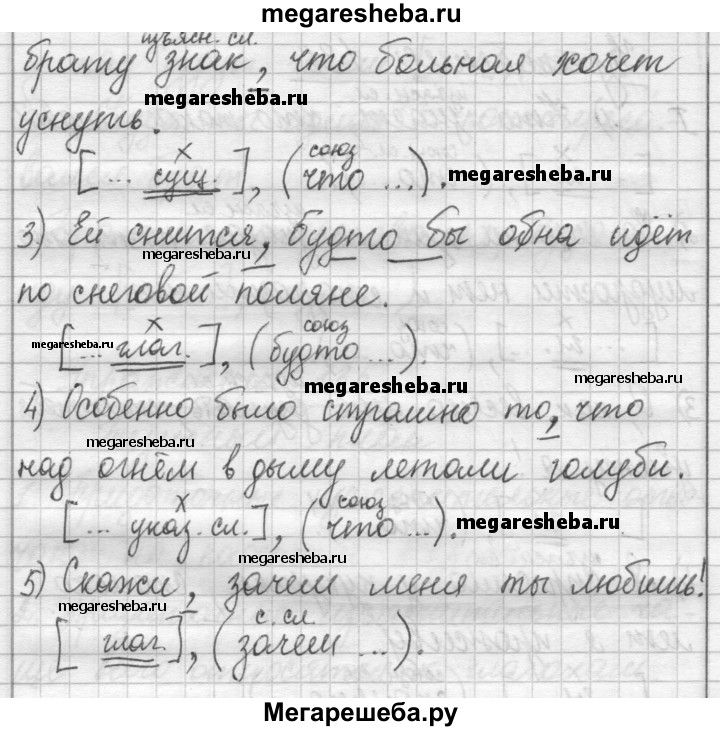 megaresheba.ru
изъясн. сл.
брату знак, что больная хочет
megaresheba.ru
уснуть.
х союз
[... сущ.], (что ...). megaresheba.ru
3) Ей снится, будто бы она идёт
megaresheba.ru megaresheba.ru
по снеговой поляне.
х союз
megaresheba.ru [... глаг.], (будто ...).
megaresheba.ru megaresheba.ru
4) Особенно было страшно то, что
megaresheba.ru
над огнём в дыму летали голуби.
х союз
[... указ. сл.], (что ...). megaresheba.ru
megaresheba.ru
5) Скажи, зачем меня ты любишь!
megaresheba.ru с. сл.
[ глаг.], (зачем ...).
megaresheba.ru
Мегарешеба.ру